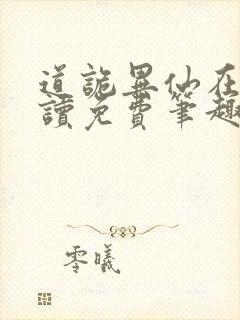 道詭異仙在
讀免費筆趣
零曦